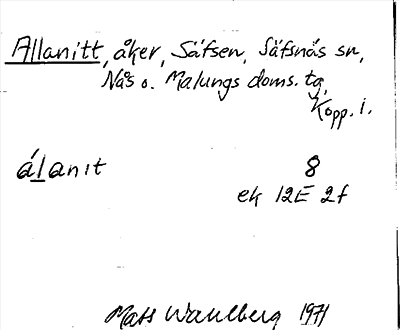 Allanitt, åker, Säfsen, Säfsnäs sn,
Nås o. Malungs doms. tg,
Kopp. l.
álanit 8
ek 12E 2f
Mats Wahlberg 1971